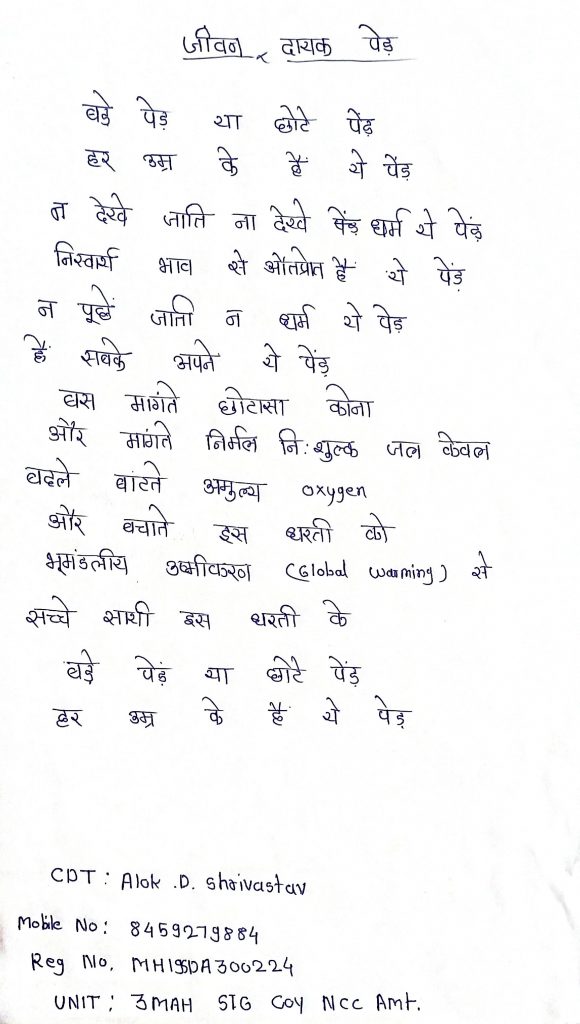 जीवन दायक पेड़
बड़े पेड़ या छोटे पेंड़
हर उम्र के हैं ये पेंड़
न देखे जाति ना देखे धर्म ये पेंड़
निस्वार्थ भाव से ओतप्रोत है ये पेंड़
न पूछे जाती न धर्म ये पेड़
हैं सबके अपने ये पेंड़
बस मागंते छोटासा कोना
और मांगते निर्मल नि:शुल्क जल केवल
बदले बांटते अमुल्य oxygen
और बचाते इस धरती को
भूमंडलीय उष्मीकरण (Global warming) से
सच्चे साथी इस धरती के
बड़े पेंड़ या छोटे पेंड़
हर उम्र के हैं ये पेड़
CDT : Alok .D. Shrivastav
Mobile No: 8459279884
Reg No. MH19SDA300224
UNIT : 3MAH SIG Coy NCC Amt.